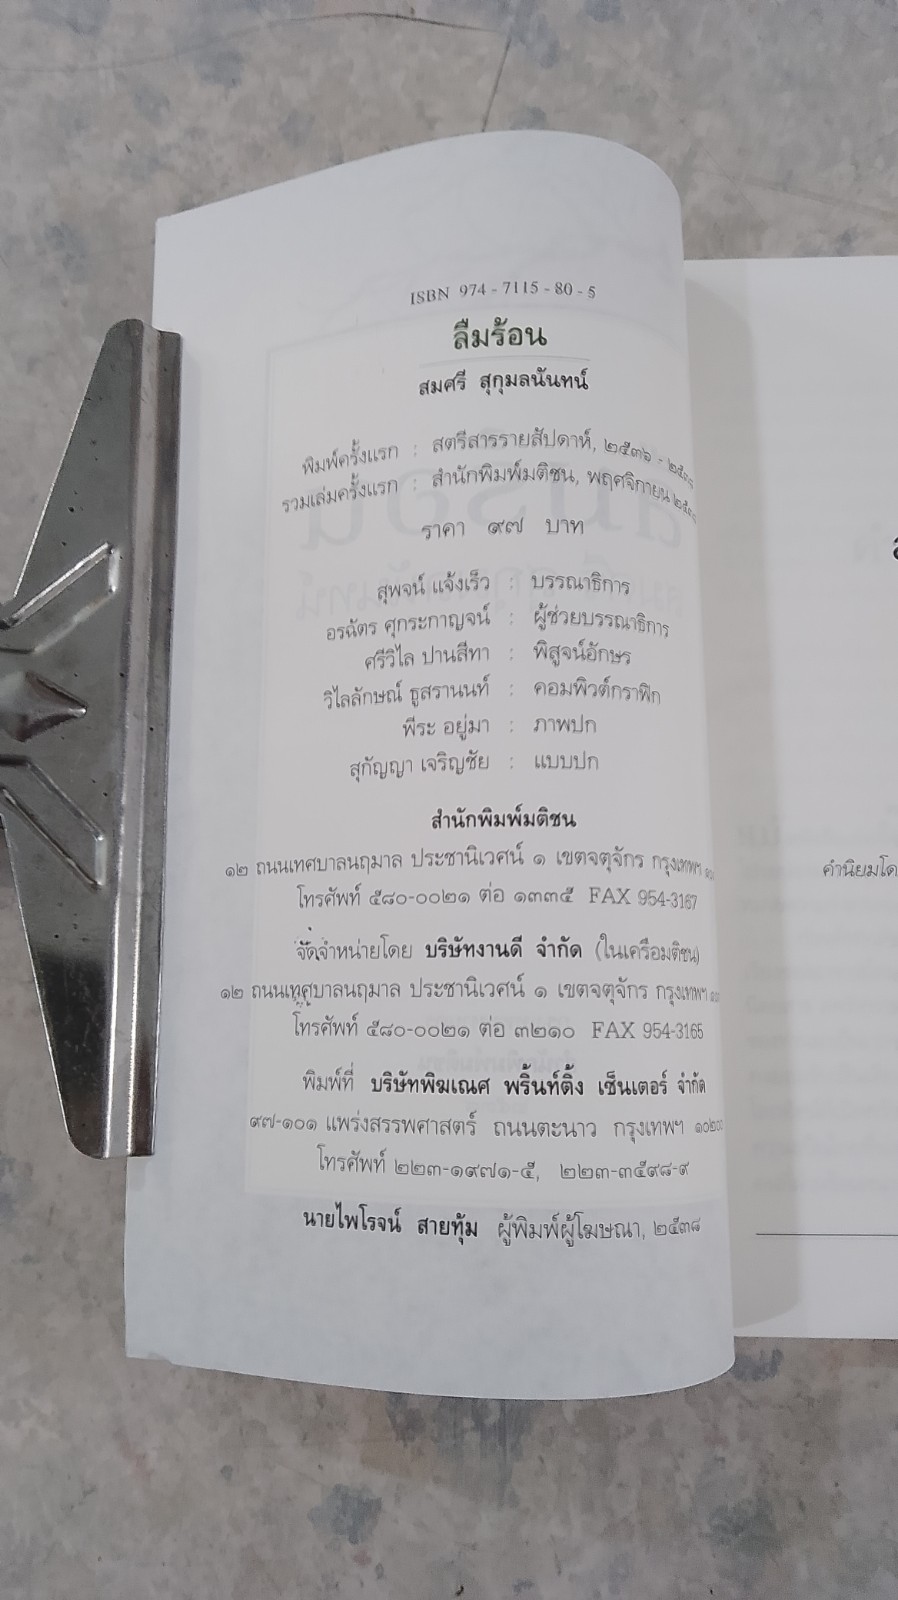 ISBN 974-7115-80-5
ลืมร้อน
สมศรี สุกุมลนันทน์
พิมพ์ครั้งแรก : สตรีสารรายสัปดาห์, ๒๕๓๖ -
รวมเล่มครั้งแรก : สำนักพิมพ์มติชน, พฤศจิกายน
ราคา ๙๗ บาท
สุพจน์ แจ้งเร็ว : บรรณาธิการ
อรฉัตร ศุกระกาญจน์ : ผู้ช่วยบรรณาธิการ
ศรีวิไล ปานสีทา : พิสูจน์อักษร
วิไลลักษณ์ ธูสรานนท์ : คอมพิวต์กราฟิก
พีระ อยู่มา : ภาพปก
สุกัญญา เจริญชัย : แบบปก
สำนักพิมพ์มติชน
๑๒ ถนนเทศบาลนฤมาล ประชานิเวศน์ ๑ เขตจตุจักร กรุงเทพฯ
โทรศัพท์ ๕๘๐-๐๐๒๑ ต่อ ๑๓๓๕ FAX 954-3167
จัดจำหน่ายโดย บริษัทงานดี จำกัด (ในเครือมติชน)
๑๒ ถนนเทศบาลนฤมาล ประชานิเวศน์ ๑ เขตจตุจักร กรุงเทพฯ
โทรศัพท์ ๕๘๐-๐๐๒๑ ต่อ ๓๒๑๐ FAX 954-3165
พิมพ์ที่ บริษัทพิฆเณศ พริ้นท์ติ้ง เซ็นเตอร์ จำกัด
๙๗-๑๐๑ แพร่งสรรพศาสตร์ ถนนตะนาว กรุงเทพฯ ๑๐๒๐๐
โทรศัพท์ ๒๒๓-๑๙๗๑-๕, ๒๒๓-๓๕๙๘-๙
นายไพโรจน์ สายทุ้ม ผู้พิมพ์ผู้โฆษณา, ๒๕๓๘
คำนิยมโด